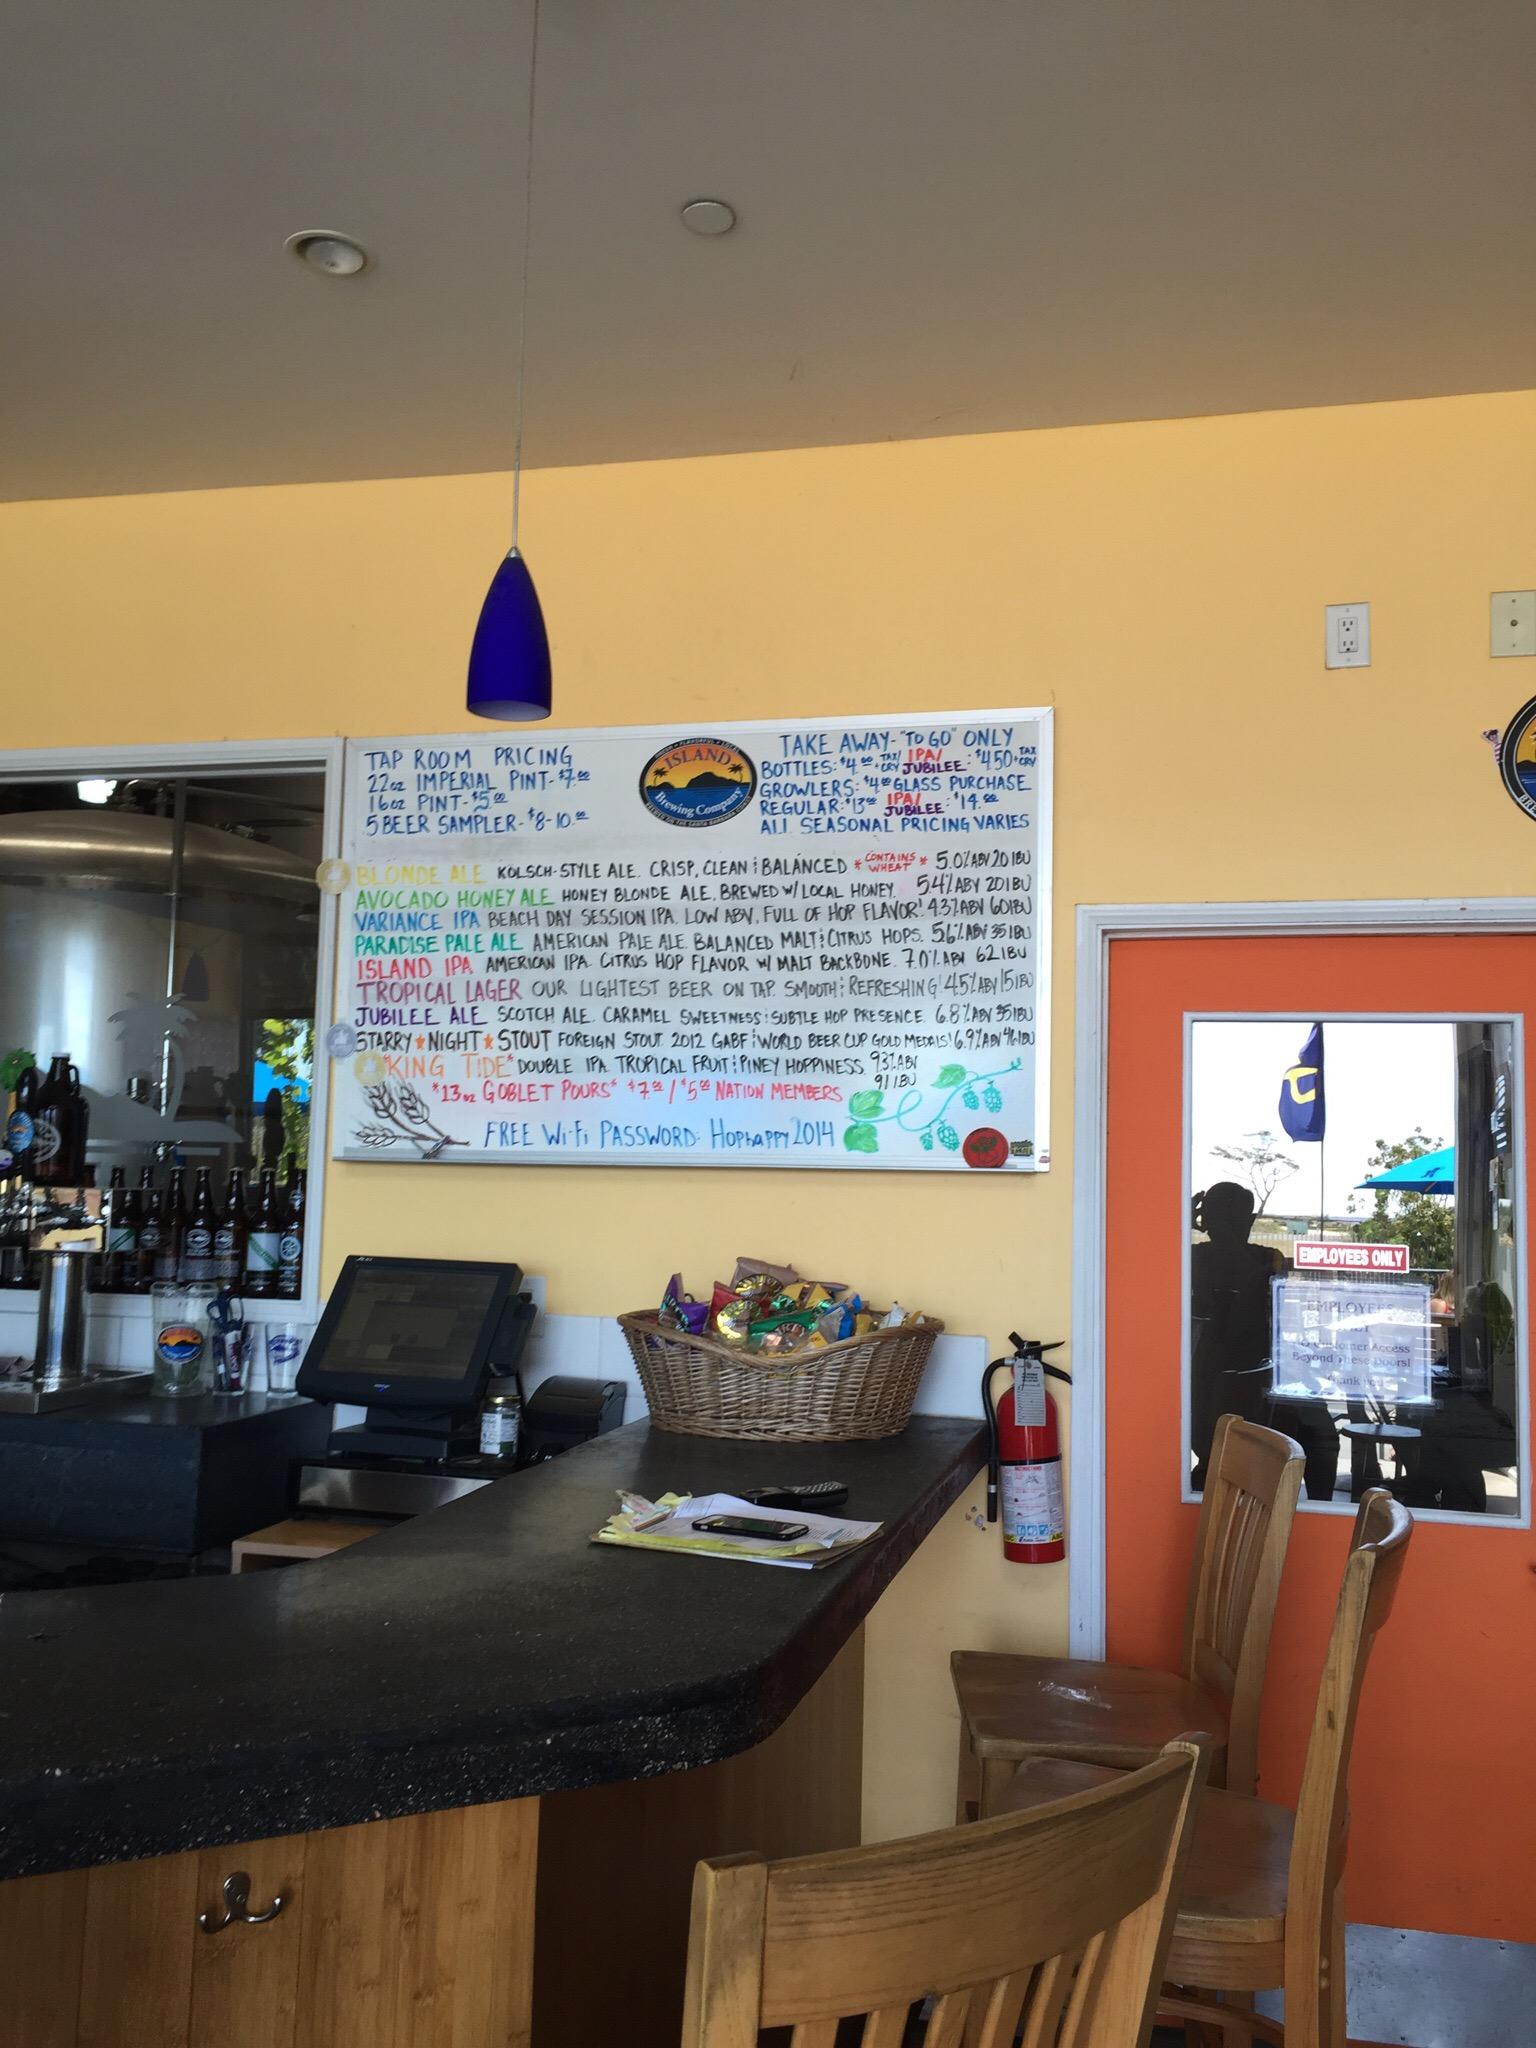 TAP ROOM PRICING
22oz IMPERIAL PINT-$7.00
16oz PINT-$5.00
5 BEER SAMPLER-$8-10.00
ISLAND
Brewing Company
TAKE AWAY-"TO GO" ONLY
BOTTLES: $4.00 +TAX/CRV IPA/JUBILEE: $4.50 +TAX CRV
GROWLERS: $4.00 GLASS PURCHASE
REGULAR: $13.00 IPA/JUBILEE: $14.00
ALL SEASONAL PRICING VARIES
BLONDE ALE KÖLSCH-STYLE ALE. CRISP, CLEAN & BALANCED *CONTAINS WHEAT* 5.0% ABV 20 IBU
AVOCADO HONEY ALE HONEY BLONDE ALE. BREWED W/ LOCAL HONEY. 5.4% ABV 20 IBU
VARIANCE IPA BEACH DAY SESSION IPA. LOW ABV, FULL OF HOP FLAVOR! 4.3% ABV 60 IBU
PARADISE PALE ALE AMERICAN PALE ALE. BALANCED MALT & CITRUS HOPS. 5.6% ABV 35 IBU
ISLAND IPA AMERICAN IPA. CITRUS HOP FLAVOR W/ MALT BACKBONE. 7.0% ABV 62 IBU
TROPICAL LAGER OUR LIGHTEST BEER ON TAP. SMOOTH & REFRESHING! 4.5% ABV 15 IBU
JUBILEE ALE SCOTCH ALE. CARAMEL SWEETNESS & SUBTLE HOP PRESENCE. 6.8% ABV 35 IBU
STARRY★NIGHT★STOUT FOREIGN STOUT. 2012 GABF & WORLD BEER CUP GOLD MEDALS! 6.9% ABV 46 IBU
*KING TIDE* DOUBLE IPA. TROPICAL FRUIT & PINEY HOPPINESS. 9.3% ABV
91 IBU
*13oz GOBLET POURS* $7.00/$5.00 NATION MEMBERS
FREE Wi-Fi PASSWORD: Hophappy2014
EMPLOYEES ONLY
EMPLOYEES
Customer Access
Beyond These Doors!
Thank you